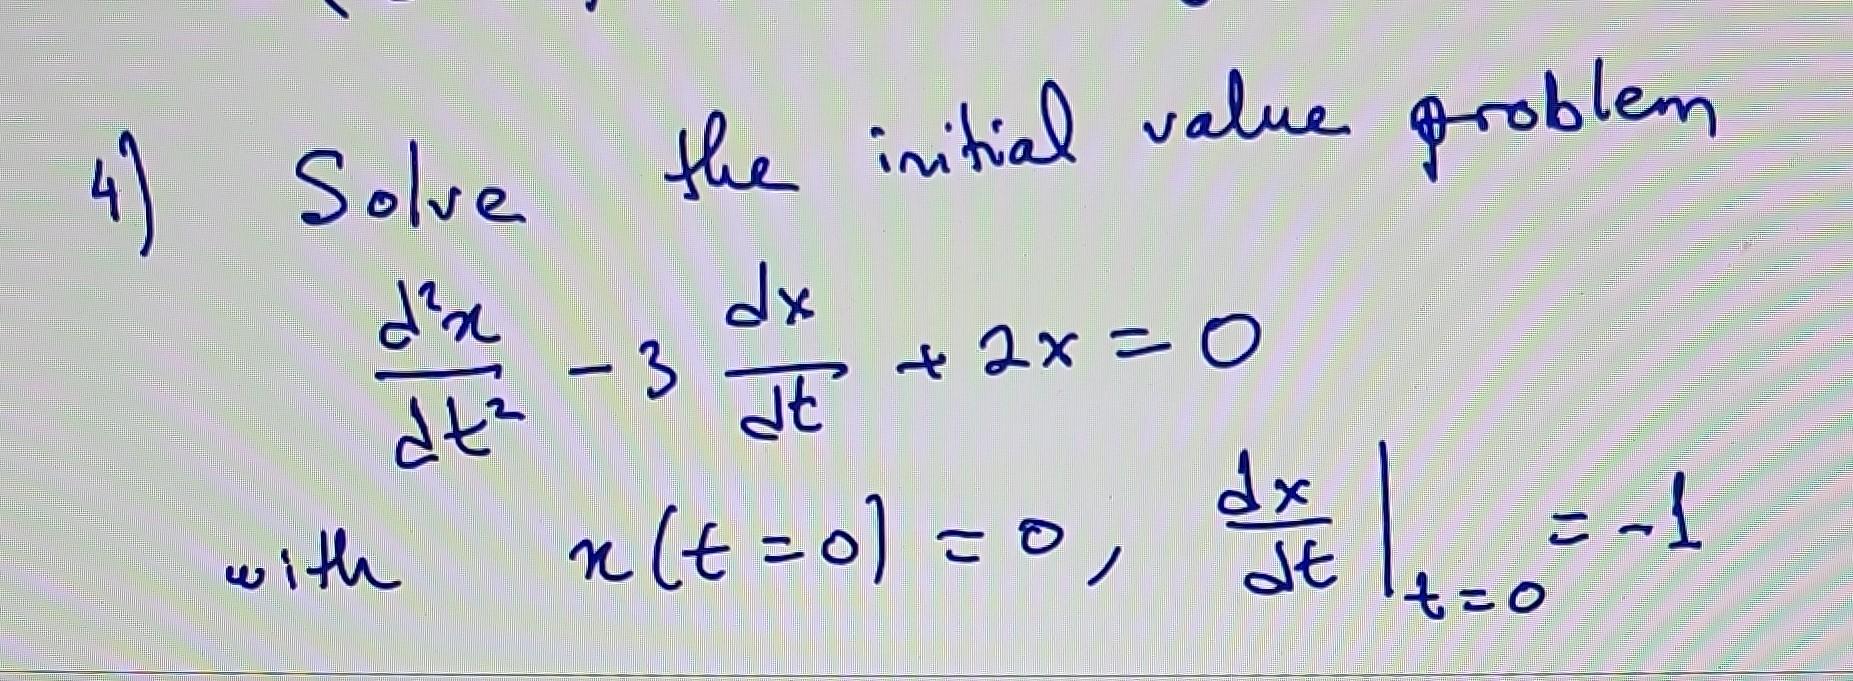 4) Solve the initial value problem
d²x/dt² - 3 dx/dt + 2x = 0
with x(t=0) = 0, dx/dt |t=0 = -1